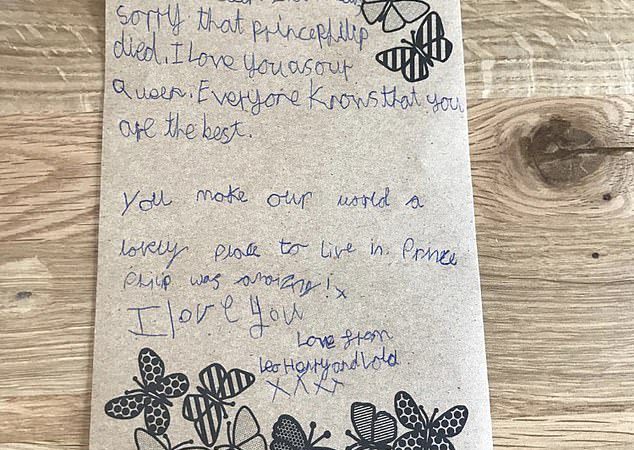 sorry that princephilip
died. I Love You as our
Queen. Everyone Knows that you
are the best.
You make our world a
lovely place to live in. Prince
Philip was amazing! x
I love You
Love from
Leo Harry and Lola
x x x x